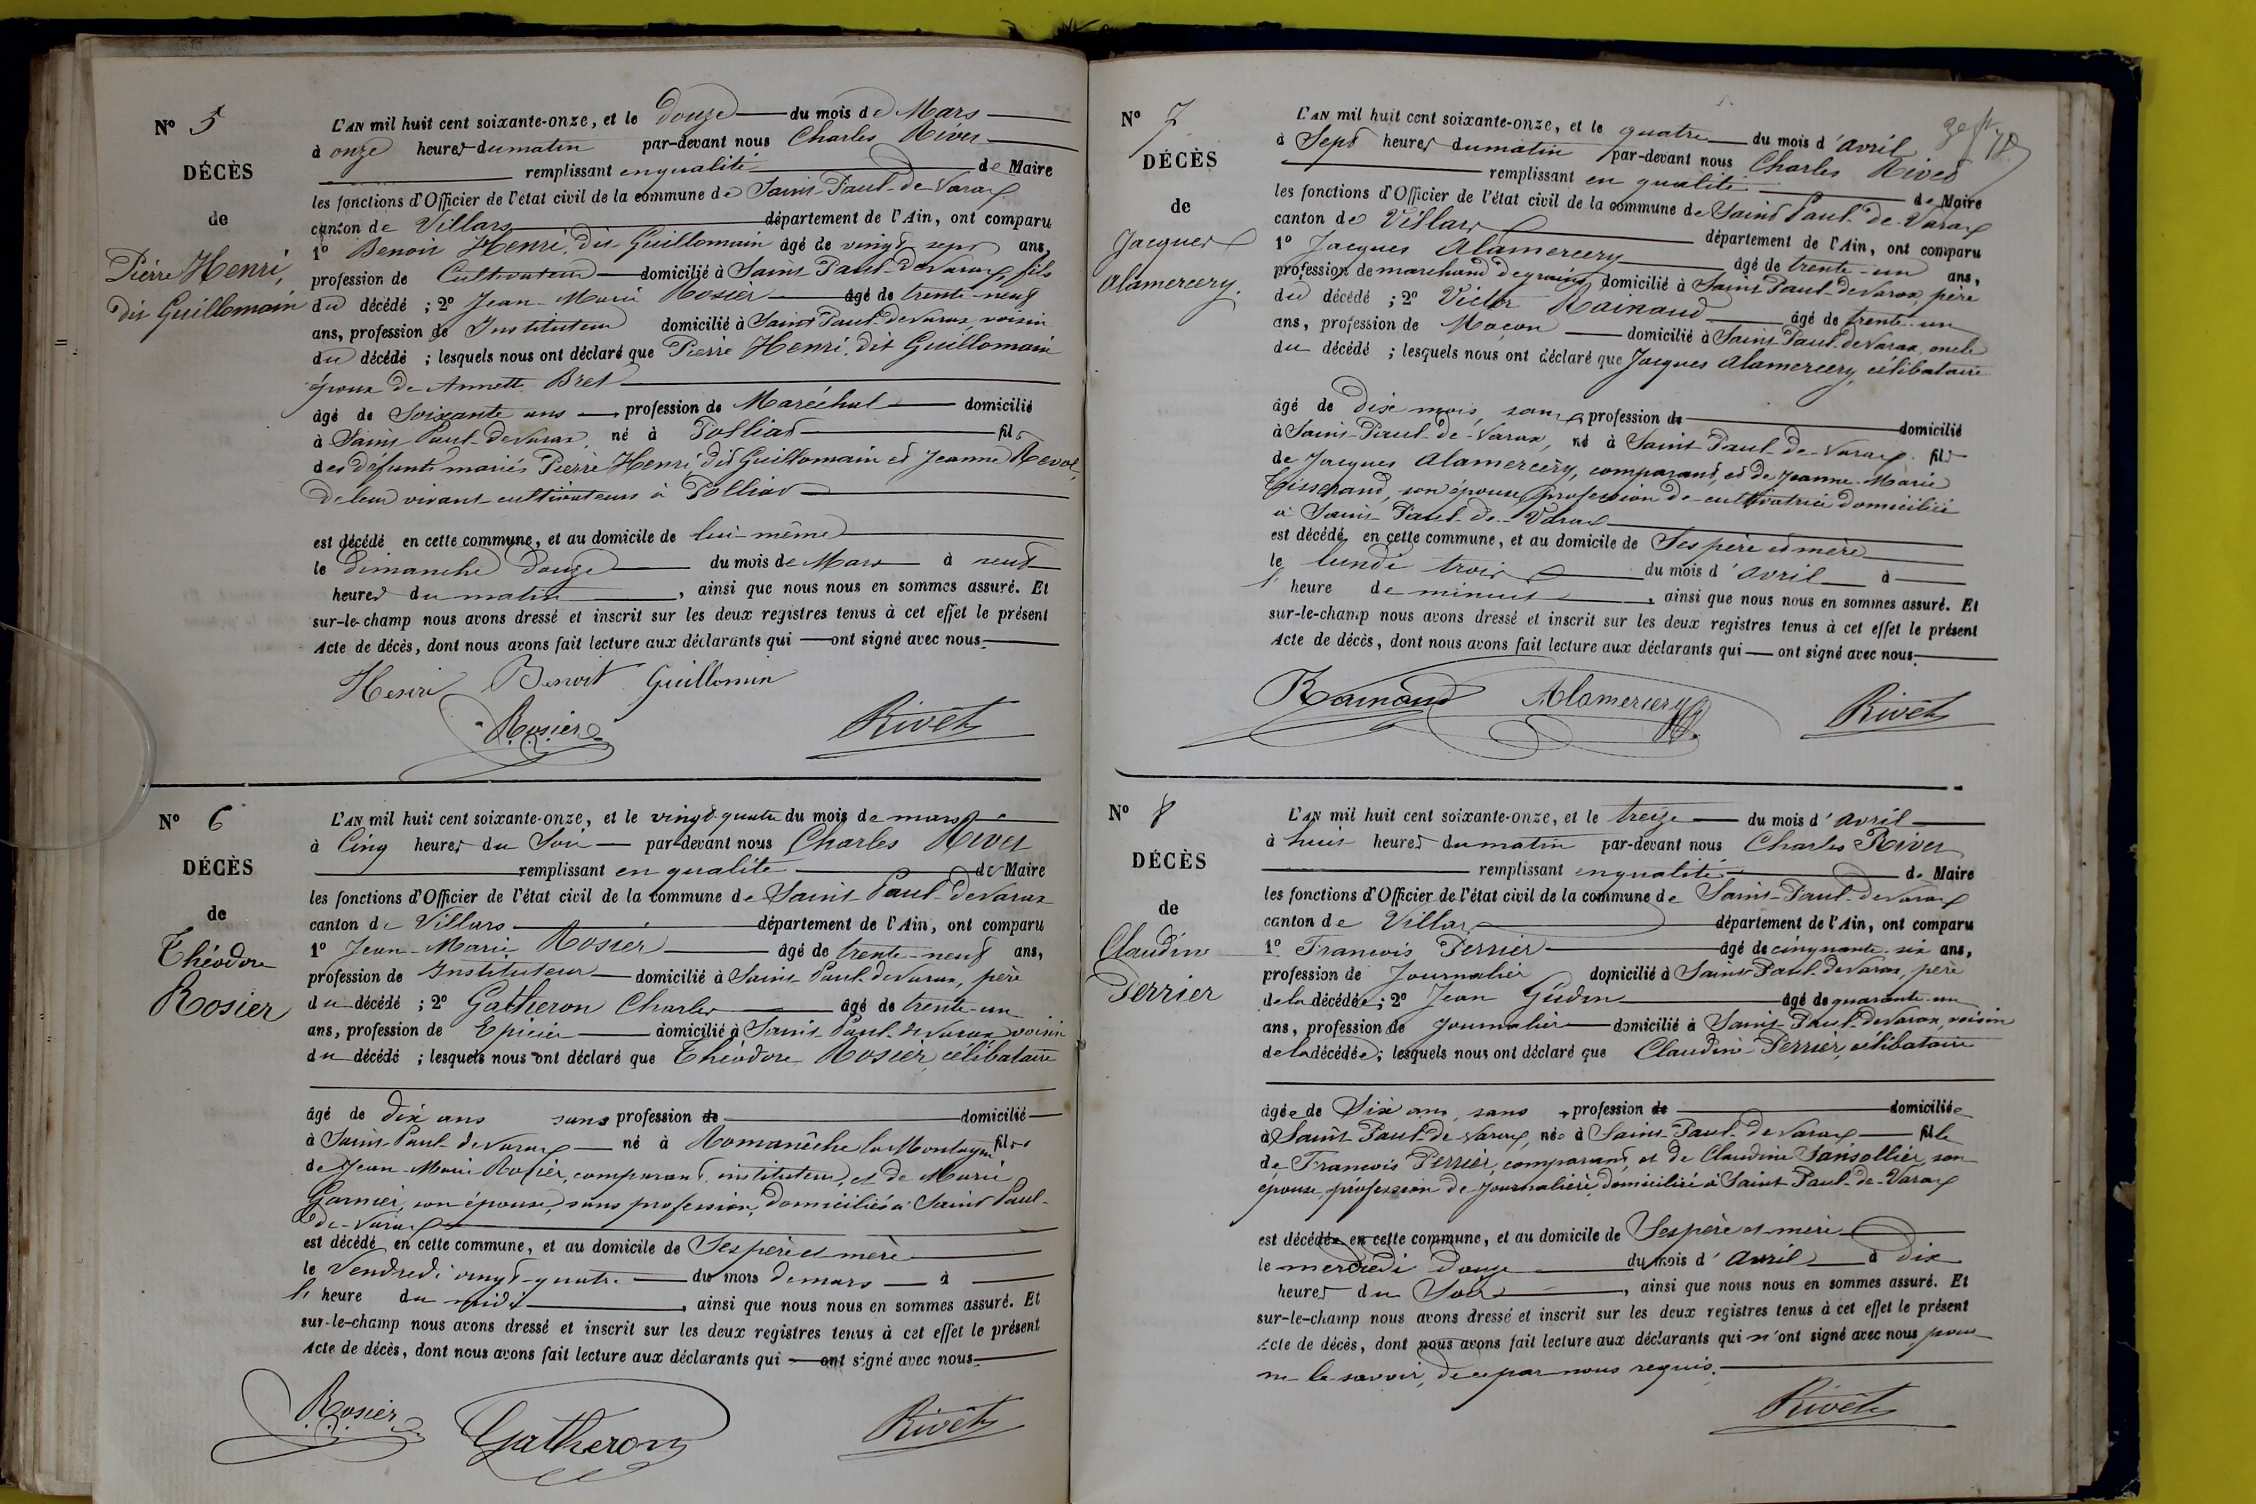 N° 5
DÉCÈS
de
Pierre Henri,
dit Guillomain
L'AN mil huit cent soixante-onze, et le douze du mois de Mars
à onze heures du matin par-devant nous Charles Rivet
remplissant en qualité de Maire
les fonctions d'Officier de l'état civil de la commune de Saint-Paul-de-Varax
canton de Villars département de l'Ain, ont comparu
1° Benoit Henri, dit Guillomain âgé de vingt sept ans,
profession de Cultivateur domicilié à Saint Paul-de-Varax, fils
du décédé ; 2° Jean-Marie Rosier âgé de trente-neuf
ans, profession de Instituteur domicilié à Saint Paul-de-Varax, voisin
du décédé ; lesquels nous ont déclaré que Pierre Henri, dit Guillomain
époux de Annette Bret
âgé de Soixante ans profession de Maréchal domicilié
à Saint Paul-de-Varax, né à Polliat fils
des défunts mariés Pierre Henri, dit Guillomain et Jeanne Revol,
de leur vivant cultivateurs à Polliat
est décédé en cette commune, et au domicile de lui-même
le dimanche douze du mois de Mars à neuf
heures du matin, ainsi que nous nous en sommes assuré. Et
sur-le-champ nous avons dressé et inscrit sur les deux registres tenus à cet effet le présent
Acte de décès, dont nous avons fait lecture aux déclarants qui ont signé avec nous.
Henri Benoit Guillomin
Rosier Rivet
N° 6
DÉCÈS
de
Théodore
Rosier
L'AN mil huit cent soixante-onze, et le vingt-quatre du mois de mars
à Cinq heures du Soir par-devant nous Charles Rivet
remplissant en qualité de Maire
les fonctions d'Officier de l'état civil de la commune de Saint Paul-de-Varax
canton de Villars département de l'Ain, ont comparu
1° Jean-Marie Rosier âgé de trente-neuf ans,
profession de Instituteur domicilié à Saint Paul-de-Varax, père
du décédé ; 2° Gatheron Charles âgé de trente-un
ans, profession de Epicier domicilié à Saint-Paul-de-Varax, voisin
du décédé ; lesquels nous ont déclaré que Théodore Rosier, célibataire
âgé de dix ans sans profession de domicilié
à Saint-Paul-de-Varax né à Romanèche la Montagne fils
de Jean-Marie Rosier, comparant, instituteur, et de Marie
Garnier, son épouse, sans profession, domiciliés à Saint Paul-
de-Varax
est décédé en cette commune, et au domicile de Ses père et mère
le Vendredi vingt-quatre du mois de mars à
l' heure du midi, ainsi que nous nous en sommes assuré. Et
sur-le-champ nous avons dressé et inscrit sur les deux registres tenus à cet effet le présent
Acte de décès, dont nous avons fait lecture aux déclarants qui ont signé avec nous.
Rosier Gatheron Rivet
N° 7
DÉCÈS
de
Jacques
Alamercery.
L'AN mil huit cent soixante-onze, et le quatre du mois d'avril
à Sept heures du matin par-devant nous Charles Rivet
remplissant en qualité de Maire
les fonctions d'Officier de l'état civil de la commune de Saint Paul-de-Varax
canton de Villars département de l'Ain, ont comparu
1° Jacques Alamercery âgé de trente-un ans,
profession de marchand de grains domicilié à Saint Paul-de-Varax, père
du décédé ; 2° Victor Rainaud âgé de trente-un
ans, profession de Maçon domicilié à Saint-Paul-de-Varax, oncle
du décédé ; lesquels nous ont déclaré que Jacques Alamercery, célibataire
âgé de dix mois, sans profession de domicilié
à Saint-Paul-de-Varax, né à Saint-Paul-de-Varax fils
de Jacques Alamercery, comparant, et de Jeanne-Marie
Tisserand, son épouse, profession de cultivatrice domiciliée
à Saint-Paul-de-Varax
est décédé en cette commune, et au domicile de Ses père et mère
le lundi trois du mois d'avril à
l' heure de minuit, ainsi que nous nous en sommes assuré. Et
sur-le-champ nous avons dressé et inscrit sur les deux registres tenus à cet effet le présent
Acte de décès, dont nous avons fait lecture aux déclarants qui ont signé avec nous.
Rainaud Alamercery Rivet
N° 8
DÉCÈS
de
Claudine
Perrier
L'AN mil huit cent soixante-onze, et le treize du mois d'avril
à huit heures du matin par-devant nous Charles Rivet
remplissant en qualité de Maire
les fonctions d'Officier de l'état civil de la commune de Saint-Paul-de-Varax
canton de Villars département de l'Ain, ont comparu
1° François Perrier âgé de cinquante-six ans,
profession de Journalier domicilié à Saint-Paul-de-Varax, père
de la décédée ; 2° Jean Gudin âgé de quarante-un
ans, profession de Journalier domicilié à Saint-Paul-de-Varax, voisin
de la décédée ; lesquels nous ont déclaré que Claudine Perrier, célibataire
âgée de Dix ans, sans profession de domiciliée
à Saint-Paul-de-Varax, née à Saint-Paul-de-Varax fille
de François Perrier, comparant, et de Claudine Jansollier, son
épouse, profession de Journalière, domiciliée à Saint-Paul-de-Varax
est décédée en cette commune, et au domicile de Ses père et mère
le mercredi douze du mois d'avril à dix
heures du Soir, ainsi que nous nous en sommes assuré. Et
sur-le-champ nous avons dressé et inscrit sur les deux registres tenus à cet effet le présent
Acte de décès, dont nous avons fait lecture aux déclarants qui n'ont signé avec nous, pour
ne le savoir, de ce par nous requis.
Rivet